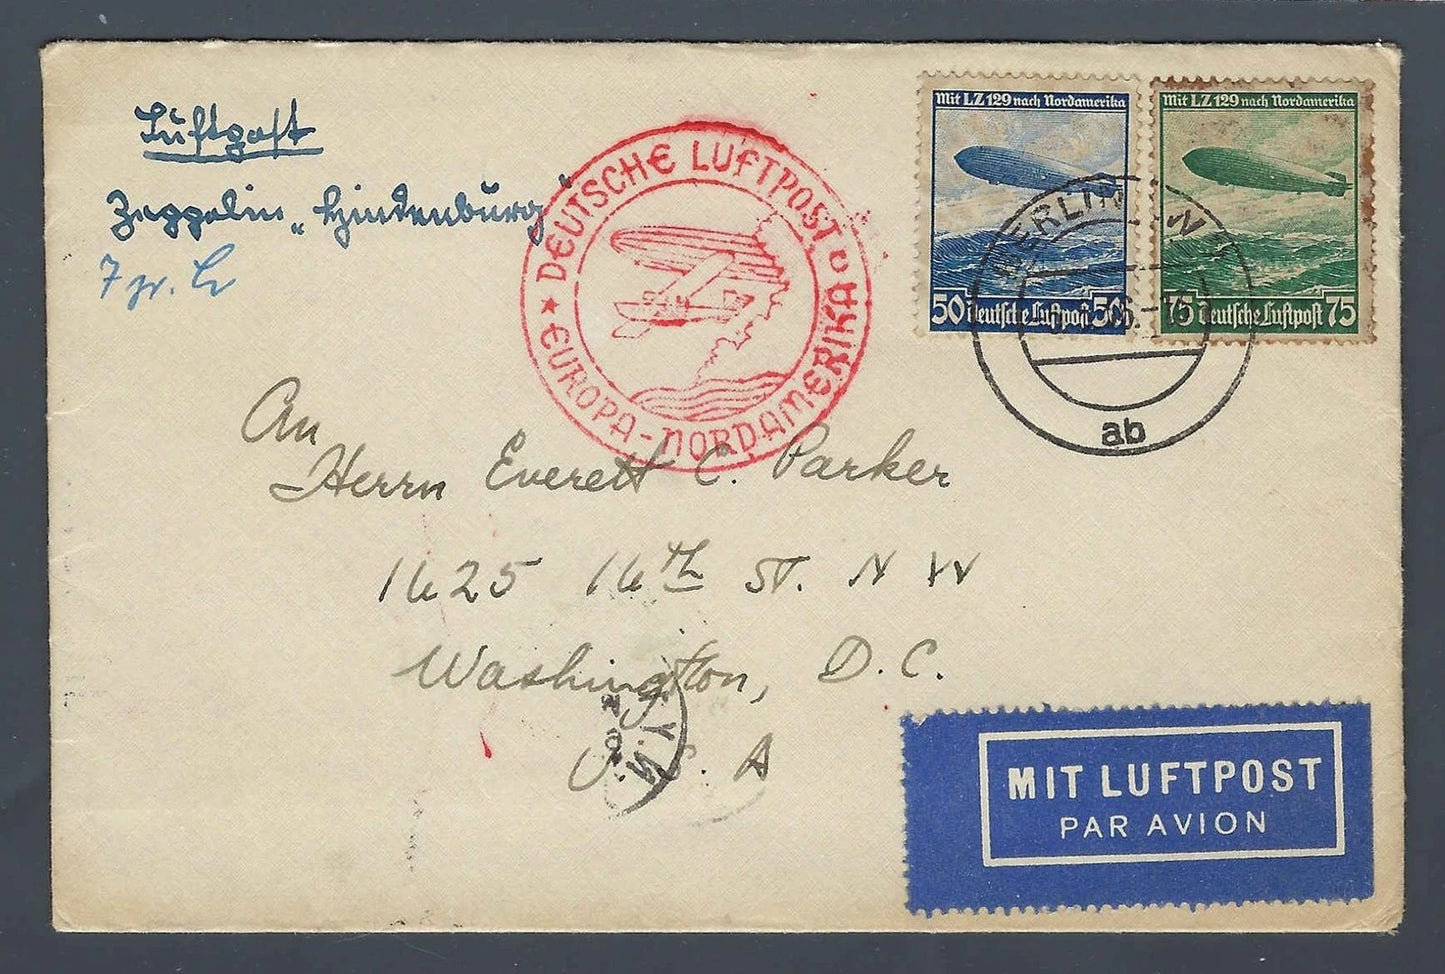 Luftpost
Zeppelin „Hindenburg"
7 gr.
DEUTSCHE LUFTPOST
EUROPA-NORDAMERIKA
Mit LZ 129 nach Nordamerika
50 Deutsche Luftpost 50
Mit LZ 129 nach Nordamerika
75 Deutsche Luftpost 75
BERLIN W
ab
An
Herrn Everett C. Parker
1625 16th ST. N W
Washington, D. C.
U. S. A
N.Y.
MIT LUFTPOST
PAR AVION